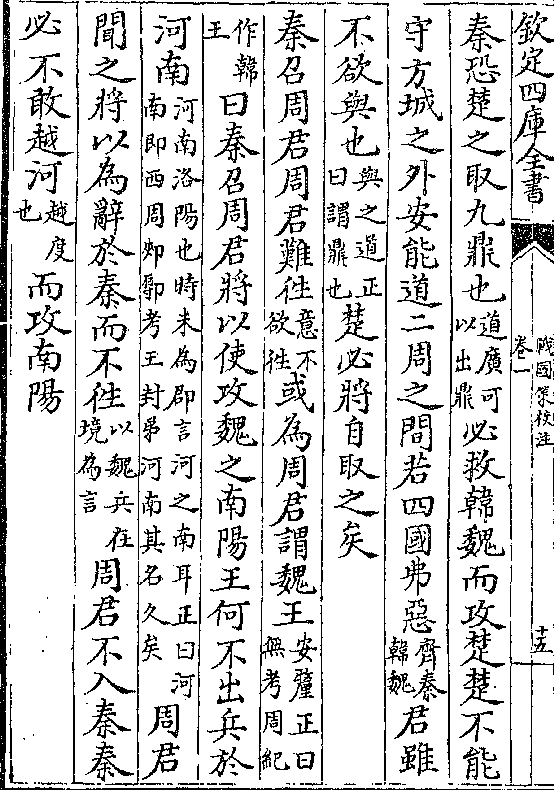 欽定四庫全書
戰國策校注
卷一
十五
秦恐楚之取九鼎也道廣可以出鼎必救韓魏而攻楚楚不能
守方城之外安能道二周之間若四國弗惡齊秦韓魏君雖
不欲與也與之道正曰謂鼎也楚必將自取之矣
秦召周君周君難往意不欲往或為周君謂魏王安釐正曰無考周紀
作韓王曰秦召周君將以使攻魏之南陽王何不出兵於
河南河南洛陽也時未為郡言河之南耳正曰河南即西周郟鄏考王封弟河南其名久矣周君
聞之將以為辭於秦而不往以魏兵在境為言周君不入秦秦
必不敢越河越度也而攻南陽